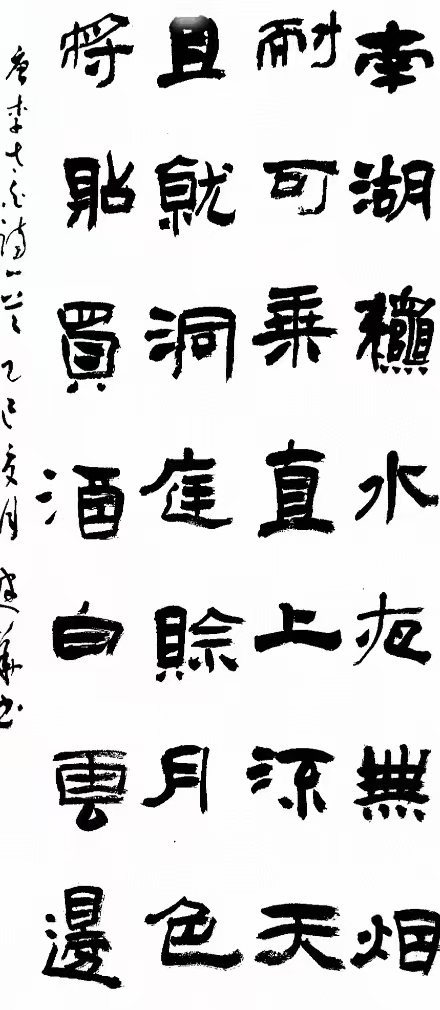 南湖龝水夜無烟
耐可乘直上流天
且就洞庭賒月色
將貼買酒白雲邊
唐李太白詩一首 乙巳夏月 建華書